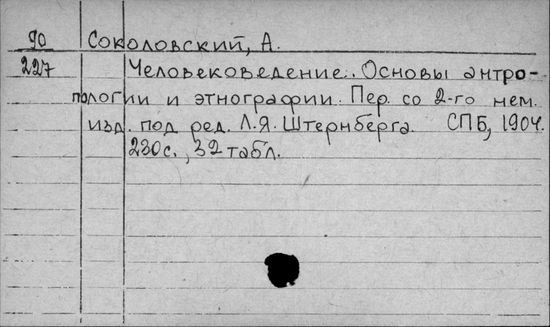 90 Соколовский, А.
227 Человековедение. Основы антро-
пологии и этнографии. Пер. со 2-го нем.
изд. под ред. Л.Я. Штернберга. СПБ, 1904.
230с., 32 табл.